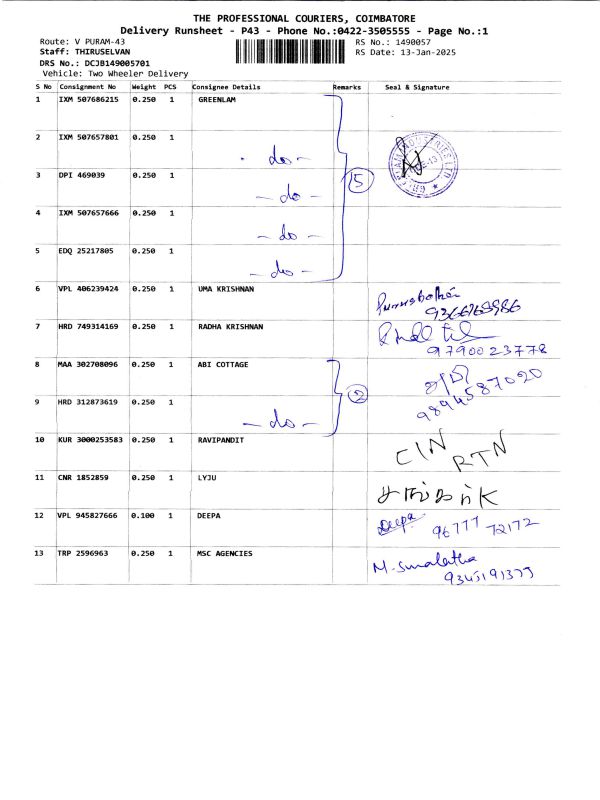 THE PROFESSIONAL COURIERS, COIMBATORE
Delivery Runsheet - P43 - Phone No.:0422-3505555 - Page No.:1
Route: V PURAM-43 RS No.: 1490057
Staff: THIRUSELVAN RS Date: 13-Jan-2025
DRS No.: DCJB149005701
Vehicle: Two Wheeler Delivery
S No Consignment No Weight PCS Consignee Details Remarks Seal & Signature
1 IXM 507686215 0.250 1 GREENLAM
2 IXM 507657801 0.250 1
- do -
3 DPI 469039 0.250 1 5
- do -
4 IXM 507657666 0.250 1
- do -
5 EDQ 25217805 0.250 1
- do -
6 VPL 406239424 0.250 1 UMA KRISHNAN
7 HRD 749314169 0.250 1 RADHA KRISHNAN
9790023778
8 MAA 302708096 0.250 1 ABI COTTAGE
2
9894587020
9 HRD 312873619 0.250 1
- do -
10 KUR 3000253583 0.250 1 RAVIPANDIT
C/N RTN
11 CNR 1852859 0.250 1 LYJU
12 VPL 945827666 0.100 1 DEEPA
Deepa 96777 72172
13 TRP 2596963 0.250 1 MSC AGENCIES